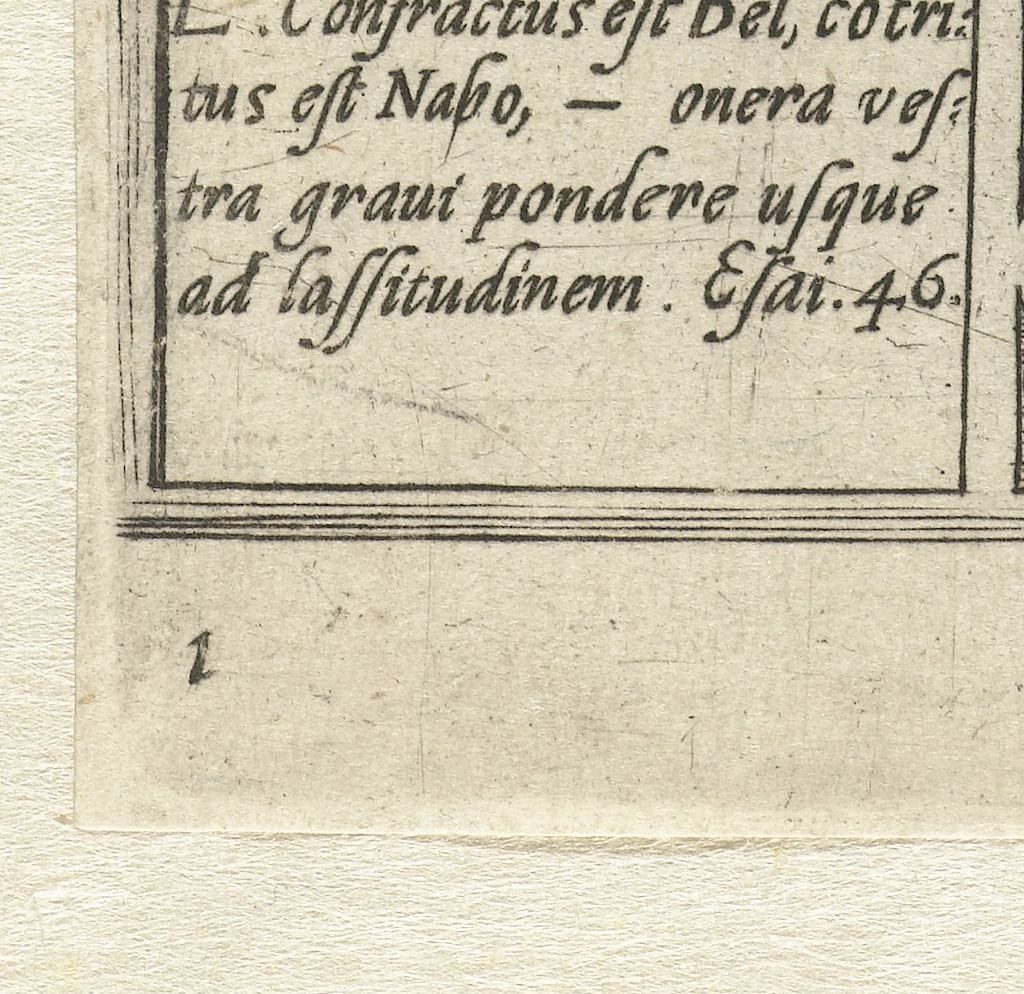 E. Confractus eſt Bel, cōtri:
tus eſt Nabo, — onera veſ:
tra graui pondere uſque
ad laſſitudinem. Eſai. 46.
1